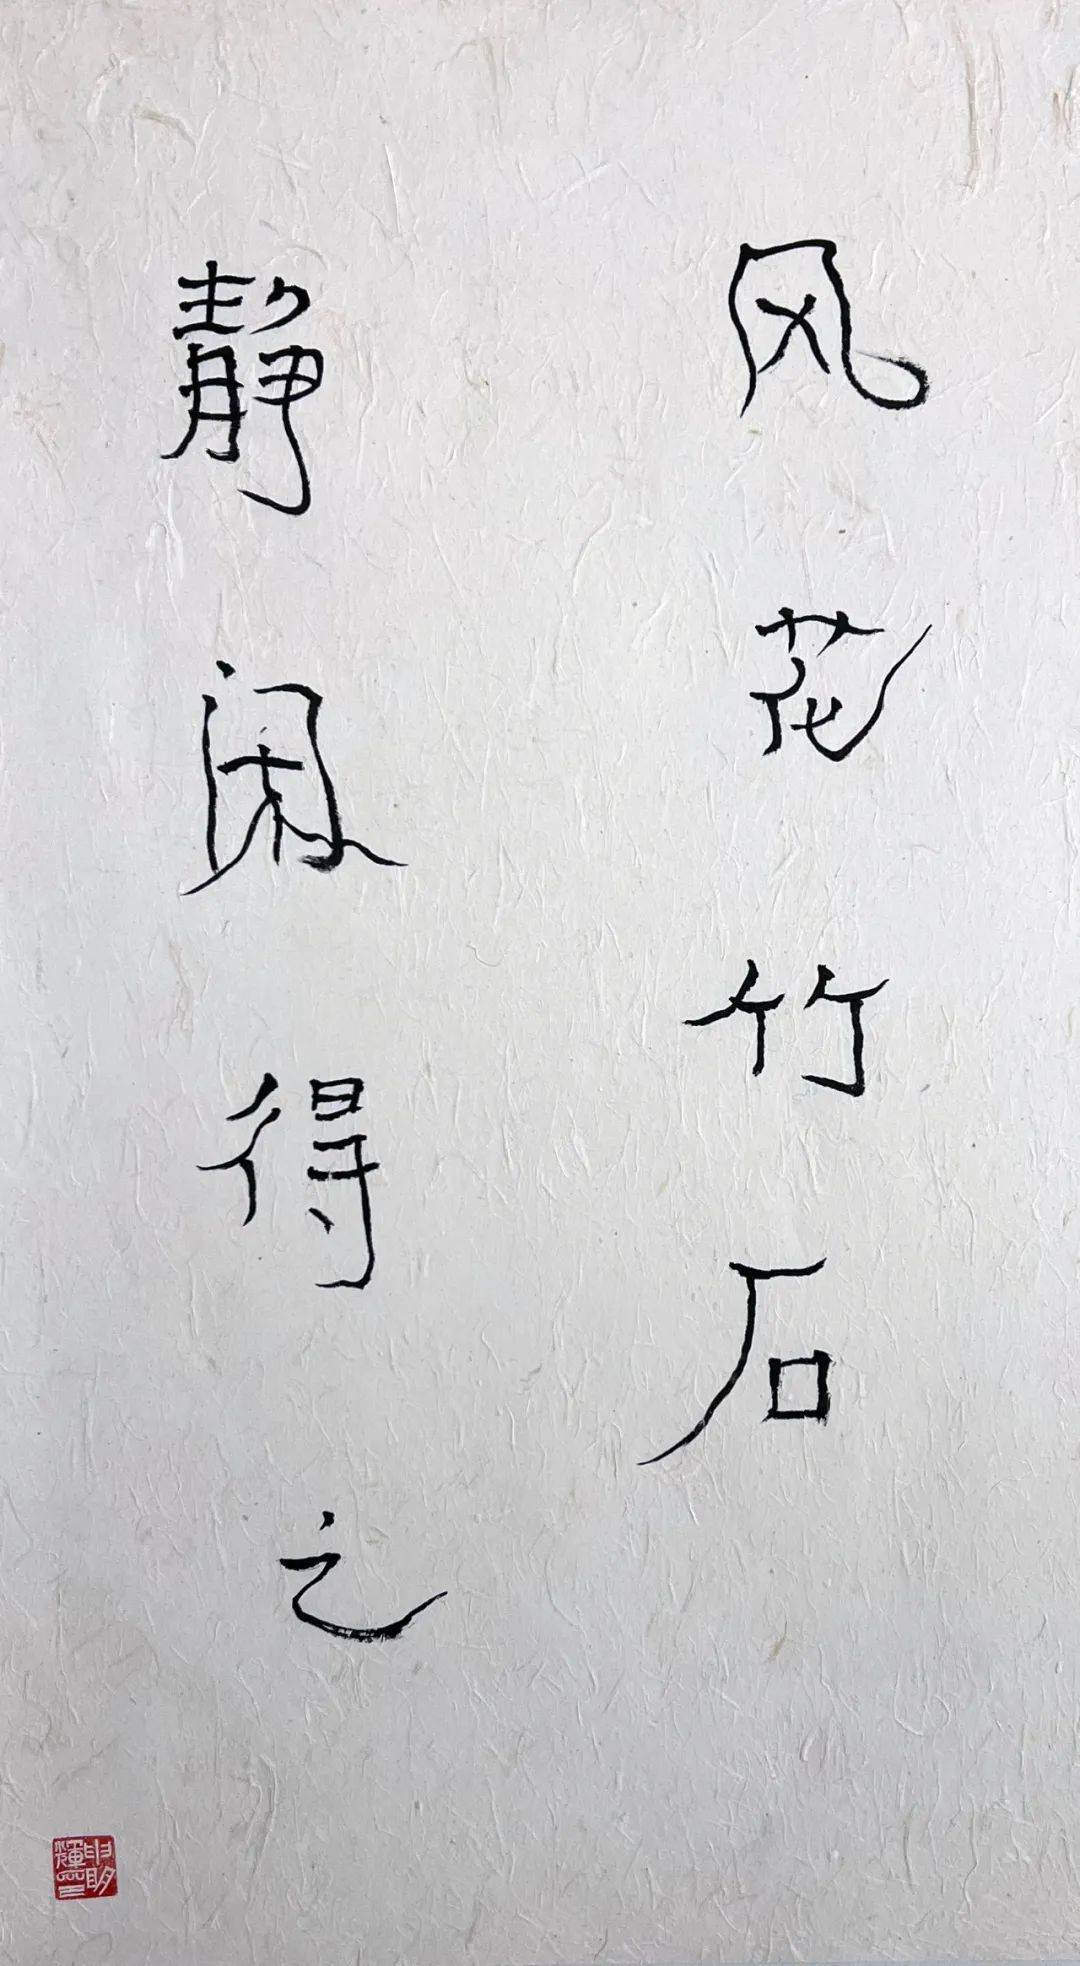 风花竹石
静闲得之